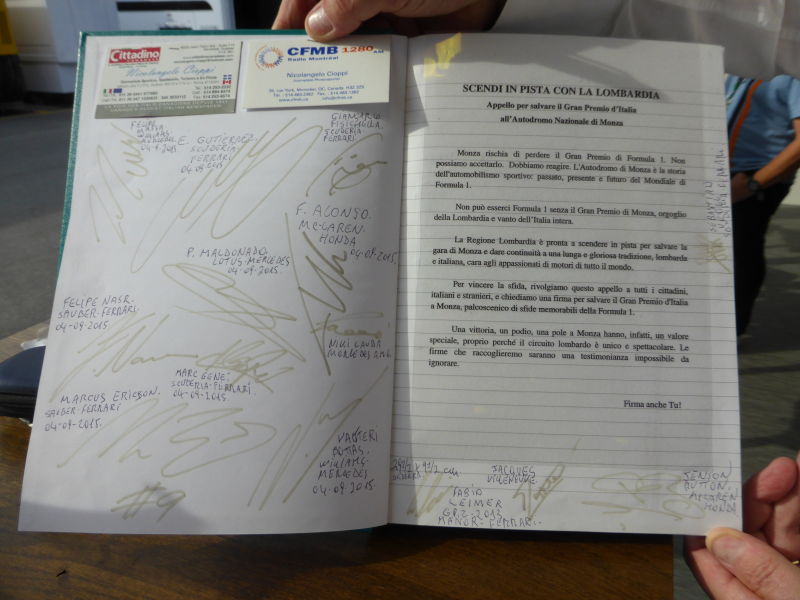 Cittadino
CANADESE
Nicolangelo Cioppi
CFMB 1280 AM
Radio Montréal
Nicolangelo Cioppi
FELIPE
MASSA
WILLIAMS
MERCEDES
04-09-2015
E. GUTIERREZ
SCUDERIA
FERRARI
04-09-2015
GIANCARLO
FISICHELLA
SCUDERIA
FERRARI
F. ALONSO.
MC-LAREN.
HONDA
04-09-2015.
P. MALDONADO
LOTUS-MERCEDES
04-09-2015.
FELIPE NASR.
SAUBER-FERRARI
04-09-2015.
NIKI LAUDA
MERCEDES AMG.
MARC GENE
SCUDERIA-FERRARI.
04-09-2015.
MARCUS ERICSON.
SAUBER-FERRARI
04-09-2015.
#9
VALTTERI
BOTTAS.
WILLIAMS-
MERCEDES
04-09-2015.
SCENDI IN PISTA CON LA LOMBARDIA
Appello per salvare il Gran Premio d'Italia
all'Autodromo Nazionale di Monza
Monza rischia di perdere il Gran Premio di Formula 1. Non
possiamo accettarlo. Dobbiamo reagire. L'Autodromo di Monza è la storia
dell'automobilismo sportivo: passato, presente e futuro del Mondiale di
Formula 1.
Non può esserci Formula 1 senza il Gran Premio di Monza, orgoglio
della Lombardia e vanto dell'Italia intera.
La Regione Lombardia è pronta a scendere in pista per salvare la
gara di Monza e dare continuità a una lunga e gloriosa tradizione, lombarda
e italiana, cara agli appassionati di motori di tutto il mondo.
Per vincere la sfida, rivolgiamo questo appello a tutti i cittadini,
italiani e stranieri, e chiediamo una firma per salvare il Gran Premio d'Italia
a Monza, palcoscenico di sfide memorabili della Formula 1.
Una vittoria, un podio, una pole a Monza hanno, infatti, un valore
speciale, proprio perché il circuito lombardo è unico e spettacolare. Le
firme che raccoglieremo saranno una testimonianza impossibile da
ignorare.
Firma anche Tu!
JACQUES
VILLENEUVE.
FABIO
LEIMER
GP.2-2013
MANOR-FERRARI.
JENSON
BUTTON.
MCLAREN
HONDA